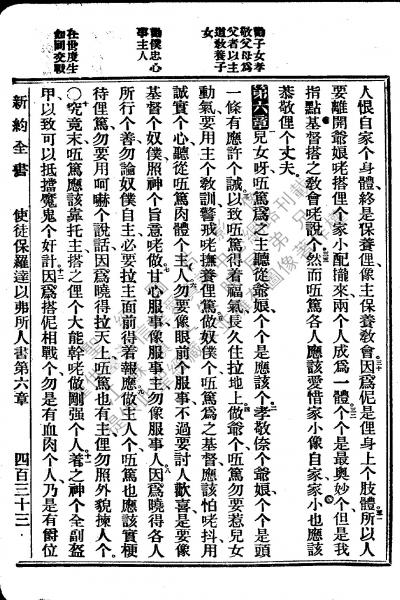 勸子女孝
敬父母爲
父者以主
道敎養子
女
勸僕忠心
事主人
在世度生
如同交戰
人恨自家个身體、終是保養俚、像主保養敎會、因爲伲是俚身上个肢體、所以人
要離開爺娘咾搭俚个家小配攏來、兩个人成爲一體、个个是最奥妙个、但是我
指點基督搭之敎會咾說个、然而俉篤各人應該愛惜家小像自家、家小也應該
恭敬俚个丈夫、
第六章 兒女呀、俉篤爲之主聽從爺娘、个个是應該个、孝敬倷个爺娘、个个是頭
一條有應許个誡、以致俉篤得着福氣、長久住拉地上、做爺个、俉篤勿要惹兒女
動氣、要用主个敎訓警戒咾撫養俚篤、做奴僕个、俉篤爲之基督應該怕咾抖、用
誠實个心聽從俉篤肉體个主人、勿要像眼前个服事、不過要討人歡喜、是要像
基督个奴僕、照神个旨意咾做、甘心服事、像服事主、勿像服事人、因爲曉得各人
所行个善、勿論奴僕自主、必要拉主面前得着報應、做主人个、俉篤也應該實梗
待俚篤、勿要用呵嚇个說話、因爲曉得拉天上俉篤也有主、俚勿照外貌揀人个、
○究竟末、俉篤應該靠托主、搭之俚个大能幹咾做剛强个人、着之神个全副盔
甲、以致可以抵擋魔鬼个奸計、因爲搭伲相戰个、勿是有血肉个人、乃是有爵位
新約全書 使徒保羅達以弗所人書第六章 四百三十三